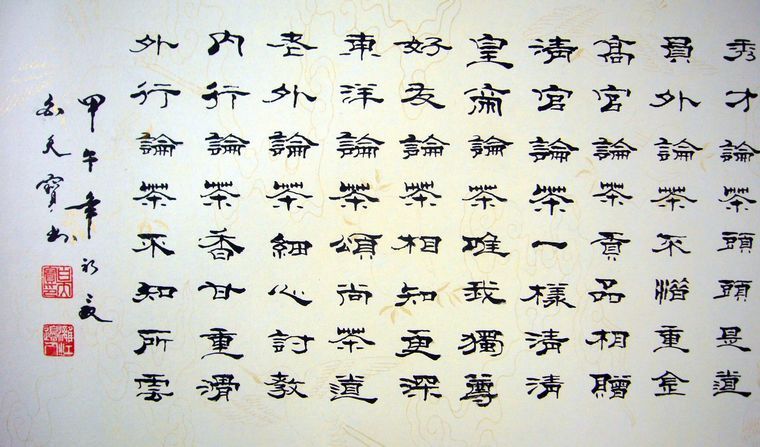 秀才論茶頭頭是道
員外論茶不惜重金
高官論茶貢品相贈
清官論茶一樣清清
皇帝論茶唯我獨尊
好友論茶相知更深
東洋論茶頌尚茶道
老外論茶細心討教
內行論茶香甘重滑
外行論茶不知所雲
甲午年初夏
白天寶书
白天寶印